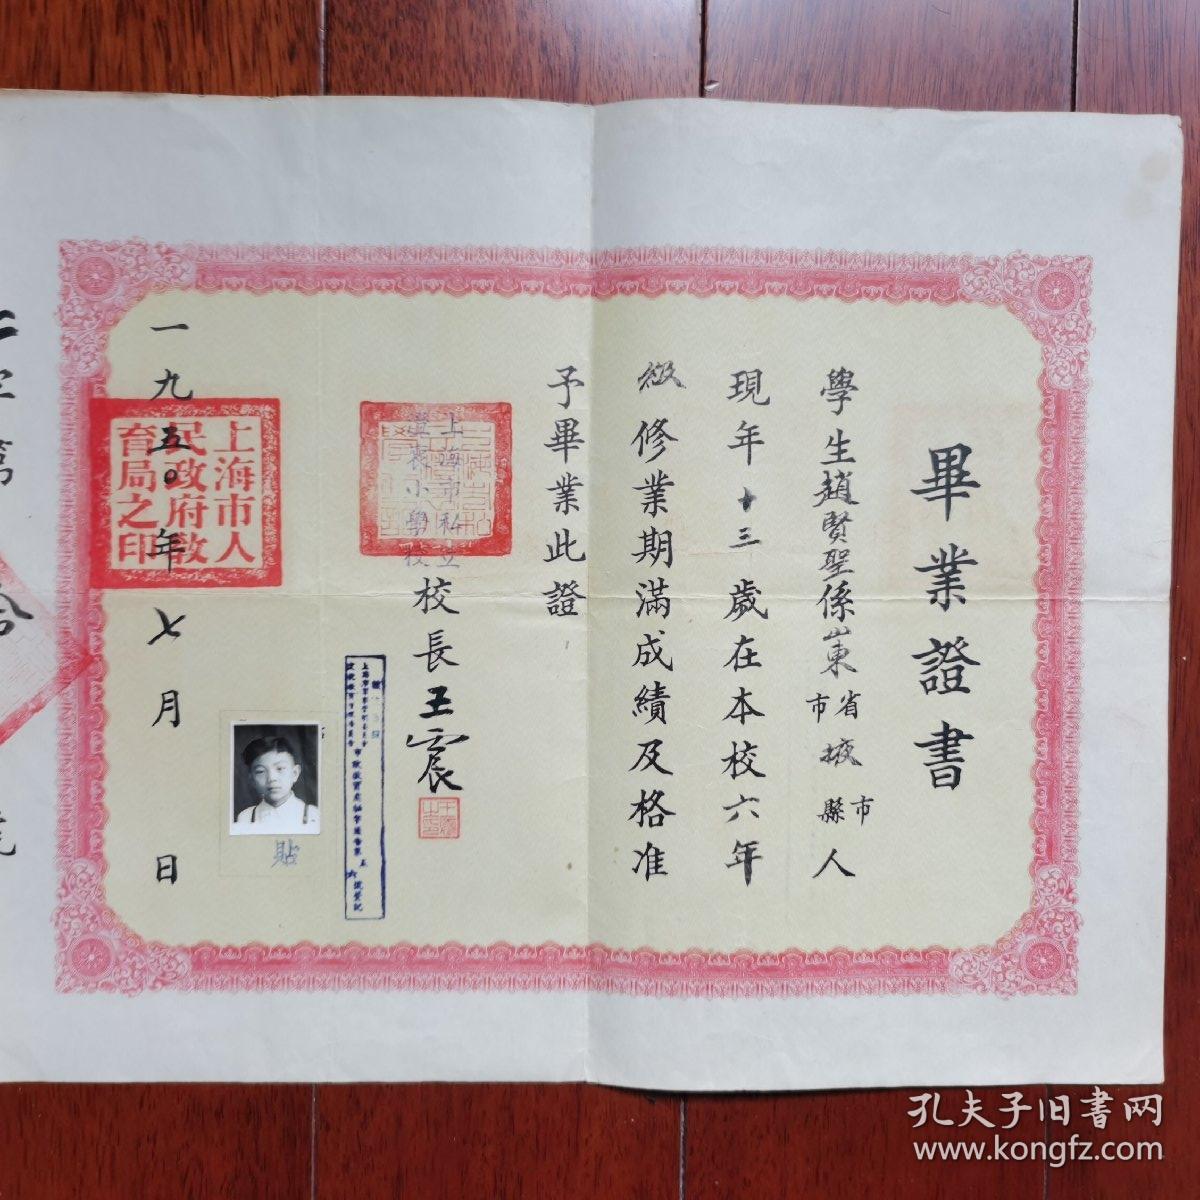 畢業證書
學生趙賢聖係山東省市掖市縣人
現年十三歲在本校六年
級修業期滿成績及格准
予畢業此證
上海市私立
小學校
校長王宸
貼
一九五〇年七月日
上海市人
民政府教
育局之印
孔夫子旧书网
www.kongfz.com